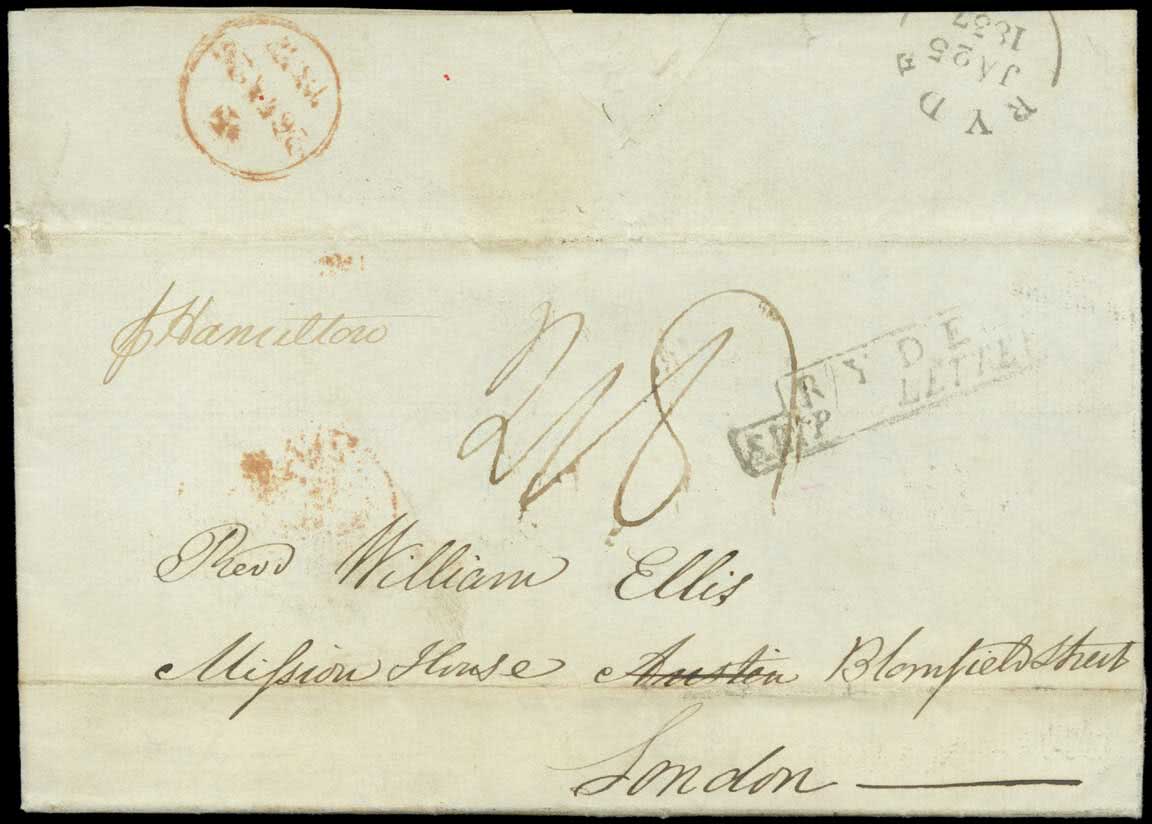 RYDE
JA 25
1837
p Hamilton
2/8
RYDE
SHIP LETTER
Revd William Ellis
Mission House Austin Blomfield Street
London